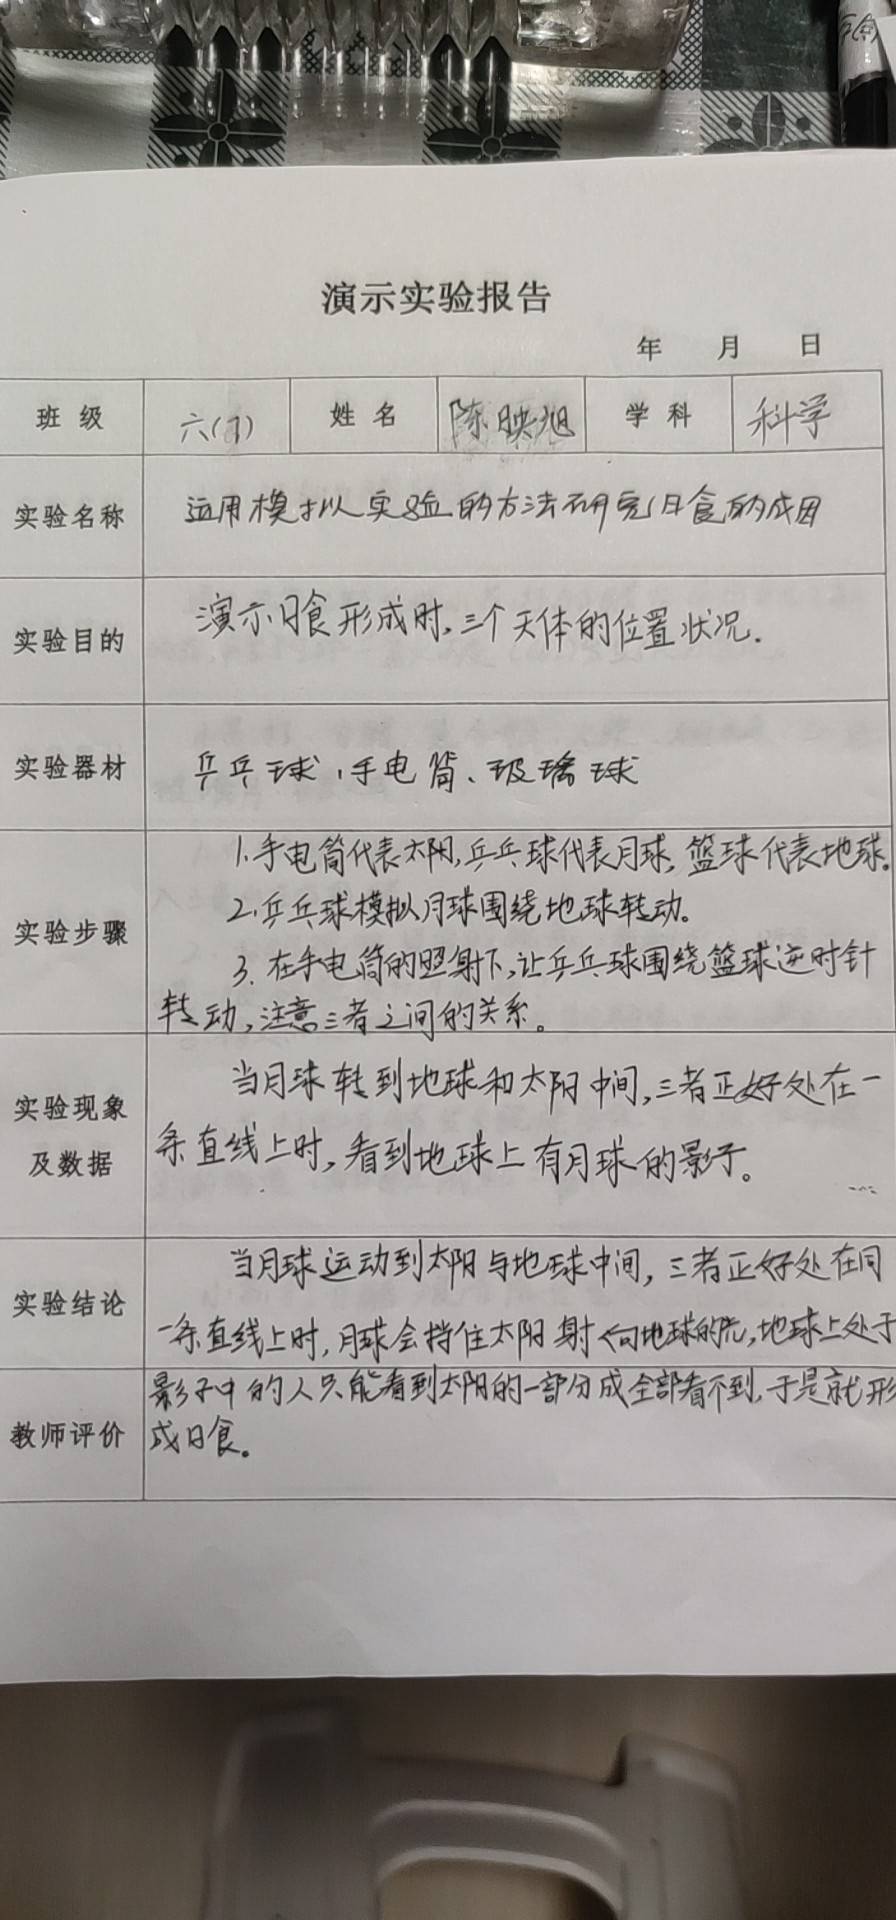 演示实验报告
年 月 日
班级 六(1) 姓名 陈映旭 学科 科学
实验名称 运用模拟实验的方法研究日食的成因
实验目的 演示日食形成时,三个天体的位置状况.
实验器材 乒乓球、手电筒、玻璃球
实验步骤
1.手电筒代表太阳,乒乓球代表月球,篮球代表地球。
2.乒乓球模拟月球围绕地球转动。
3.在手电筒的照射下,让乒乓球围绕篮球逆时针
转动,注意三者之间的关系。
实验现象
及数据
当月球转到地球和太阳中间,三者正好处在一
条直线上时,看到地球上有月球的影子。
实验结论
当月球运动到太阳与地球中间,三者正好处在同
一条直线上时,月球会挡住太阳射向地球的光,地球上处于
教师评价
影子中的人只能看到太阳的一部分或全部看不到,于是就形
成日食。